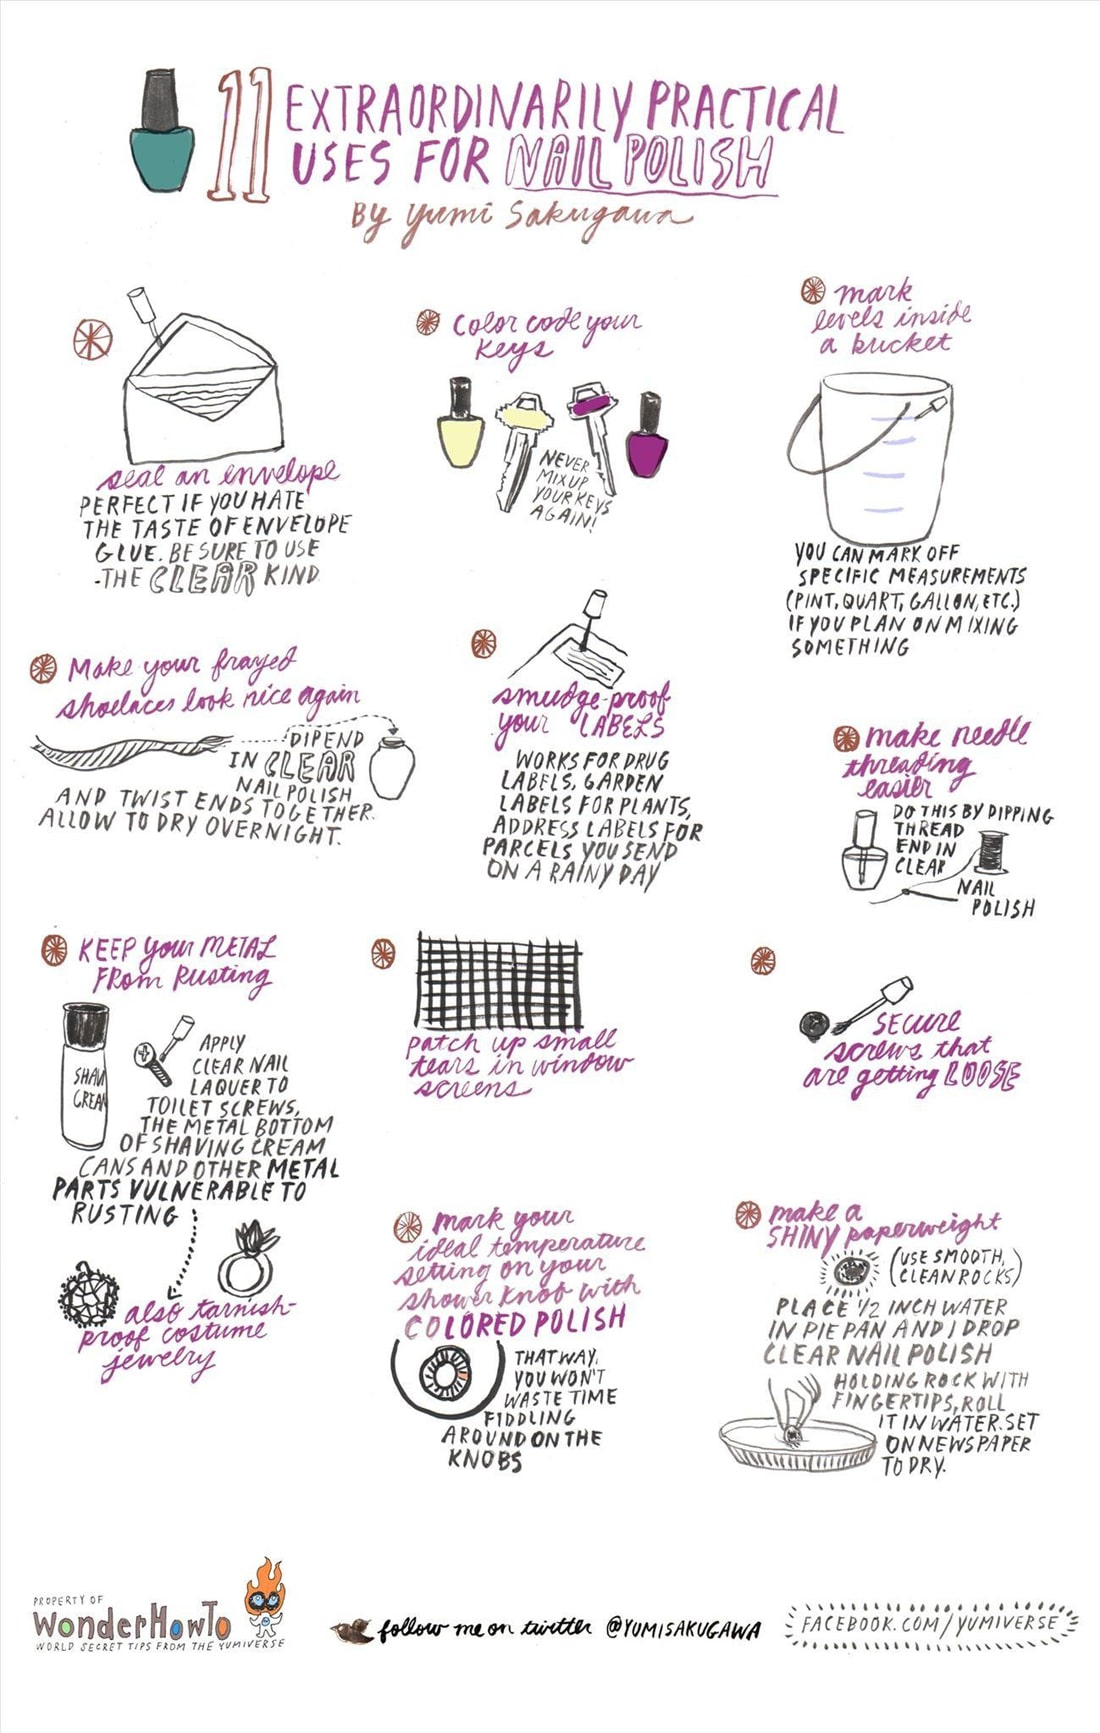 11 EXTRAORDINARILY PRACTICAL
USES FOR NAIL POLISH
By Yumi Sakugawa
seal an envelope
PERFECT IF YOU HATE
THE TASTE OF ENVELOPE
GLUE. BE SURE TO USE
-THE CLEAR KIND
Color code your
keys
NEVER
MIX UP
YOUR KEYS
AGAIN!
mark
levels inside
a bucket
YOU CAN MARK OFF
SPECIFIC MEASUREMENTS
(PINT, QUART, GALLON, ETC.)
IF YOU PLAN ON MIXING
SOMETHING
Make your frayed
shoelaces look nice again
DIP END
IN CLEAR
NAIL POLISH
AND TWIST ENDS TOGETHER.
ALLOW TO DRY OVERNIGHT.
smudge-proof
your LABELS
WORKS FOR DRUG
LABELS, GARDEN
LABELS FOR PLANTS,
ADDRESS LABELS FOR
PARCELS YOU SEND
ON A RAINY DAY
make needle
threading
easier
DO THIS BY DIPPING
THREAD
END IN
CLEAR
NAIL
POLISH
KEEP your METAL
From Rusting
SHAV
CREAM
APPLY
CLEAR NAIL
LAQUER TO
TOILET SCREWS,
THE METAL BOTTOM
OF SHAVING CREAM
CANS AND OTHER METAL
PARTS VULNERABLE TO
RUSTING
also tarnish-
proof costume
jewelry
patch up small
tears in window
screens
SECURE
screws that
are getting LOOSE
mark your
ideal temperature
setting on your
shower knob with
COLORED POLISH
THAT WAY,
YOU WON'T
WASTE TIME
FIDDLING
AROUND ON THE
KNOBS
make a
SHINY paperweight
(USE SMOOTH,
CLEAN ROCKS)
PLACE 1/2 INCH WATER
IN PIE PAN AND 1 DROP
CLEAR NAIL POLISH
HOLDING ROCK WITH
FINGERTIPS, ROLL
IT IN WATER. SET
ON NEWSPAPER
TO DRY.
PROPERTY OF
WonderHowTo
WORLD SECRET TIPS FROM THE YUMIVERSE
follow me on twitter @YUMISAKUGAWA
FACEBOOK.COM/YUMIVERSE